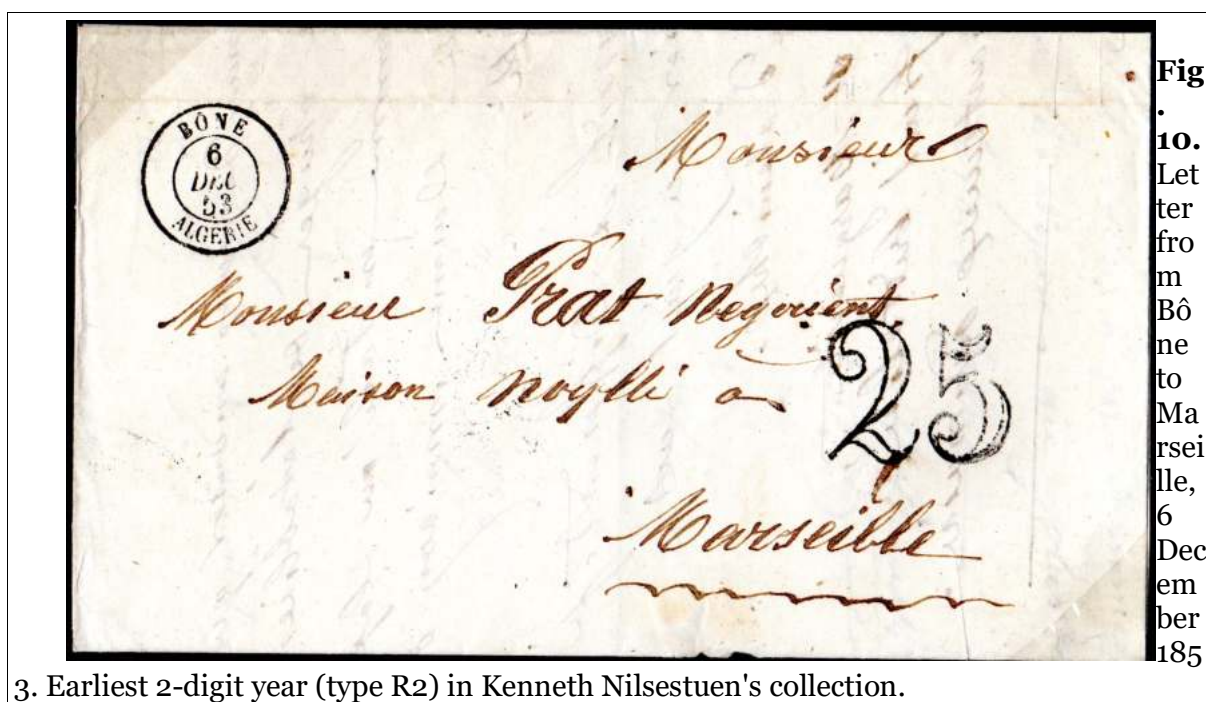 BÔNE
6
DEC
53
ALGERIE
Monsieur
Monsieur Prat Negocient
Maison Noylli a
25
Marseille
Fig
.
10.
Let
ter
fro
m
Bô
ne
to
Ma
rsei
lle,
6
Dec
em
ber
185
3. Earliest 2-digit year (type R2) in Kenneth Nilsestuen's collection.